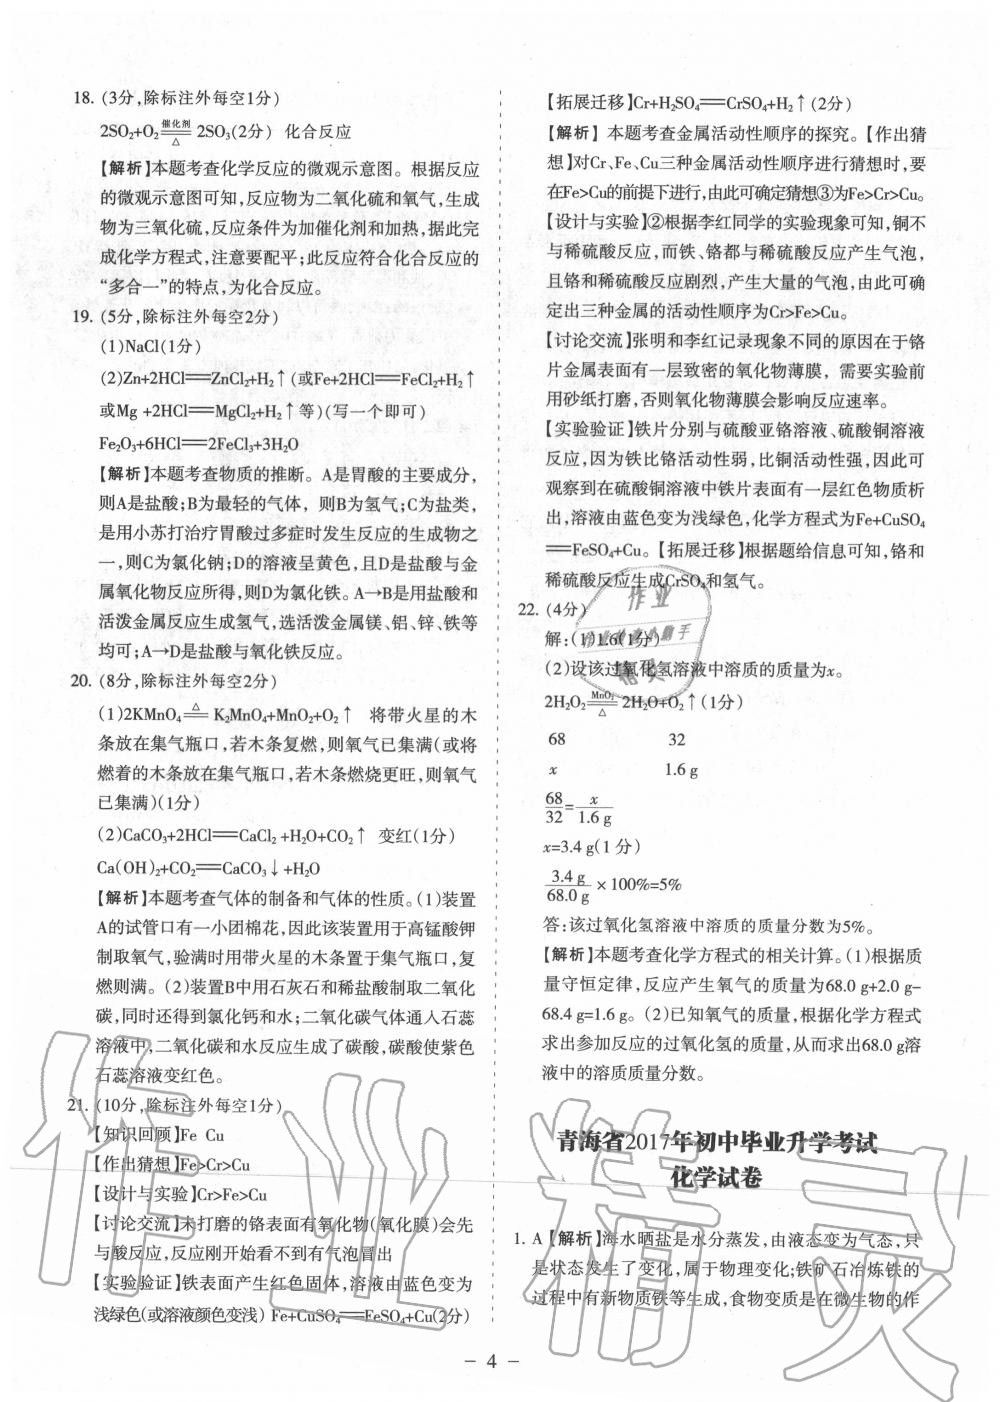 18. (3分,除标注外每空1分)
2SO₂+O₂ 催化剂══△ 2SO₃(2分) 化合反应
【解析】本题考查化学反应的微观示意图。根据反应
的微观示意图可知,反应物为二氧化硫和氧气,生成
物为三氧化硫,反应条件为加催化剂和加热,据此完
成化学方程式,注意要配平;此反应符合化合反应的
“多合一”的特点,为化合反应。
19. (5分,除标注外每空2分)
(1)NaCl(1分)
(2)Zn+2HCl══ZnCl₂+H₂↑(或Fe+2HCl══FeCl₂+H₂↑
或Mg +2HCl══MgCl₂+H₂↑等)(写一个即可)
Fe₂O₃+6HCl══2FeCl₃+3H₂O
【解析】本题考查物质的推断。A是胃酸的主要成分,
则A是盐酸;B为最轻的气体, 则B为氢气;C为盐类,
是用小苏打治疗胃酸过多症时发生反应的生成物之
一,则C为氯化钠;D的溶液呈黄色,且D是盐酸与金
属氧化物反应所得,则D为氯化铁。A→B是用盐酸和
活泼金属反应生成氢气,选活泼金属镁、铝、锌、铁等
均可;A→D是盐酸与氧化铁反应。
20. (8分,除标注外每空2分)
(1)2KMnO₄ △══ K₂MnO₄+MnO₂+O₂↑ 将带火星的木
条放在集气瓶口,若木条复燃,则氧气已集满(或将
燃着的木条放在集气瓶口,若木条燃烧更旺,则氧气
已集满)(1分)
(2)CaCO₃+2HCl══CaCl₂ +H₂O+CO₂↑ 变红(1分)
Ca(OH)₂+CO₂══CaCO₃↓+H₂O
【解析】本题考查气体的制备和气体的性质。(1)装置
A的试管口有一小团棉花,因此该装置用于高锰酸钾
制取氧气,验满时用带火星的木条置于集气瓶口,复
燃则满。(2)装置B中用石灰石和稀盐酸制取二氧化
碳,同时还得到氯化钙和水;二氧化碳气体通入石蕊
溶液中,二氧化碳和水反应生成了碳酸,碳酸使紫色
石蕊溶液变红色。
21. (10分,除标注外每空1分)
【知识回顾】Fe Cu
【作出猜想】Fe>Cr>Cu
【设计与实验】Cr>Fe>Cu
【讨论交流】未打磨的铬表面有氧化物(氧化膜)会先
与酸反应,反应刚开始看不到有气泡冒出
【实验验证】铁表面产生红色固体,溶液由蓝色变为
浅绿色(或溶液颜色变浅) Fe+CuSO₄══FeSO₄+Cu(2分)
【拓展迁移】Cr+H₂SO₄══CrSO₄+H₂↑(2分)
【解析】本题考查金属活动性顺序的探究。【作出猜
想】对Cr、Fe、Cu三种金属活动性顺序进行猜想时,要
在Fe>Cu的前提下进行,由此可确定猜想③为Fe>Cr>Cu。
【设计与实验】②根据李红同学的实验现象可知,铜不
与稀硫酸反应,而铁、铬都与稀硫酸反应产生气泡,
且铬和稀硫酸反应剧烈,产生大量的气泡,由此可确
定出三种金属的活动性顺序为Cr>Fe>Cu。
【讨论交流】张明和李红记录现象不同的原因在于铬
片金属表面有一层致密的氧化物薄膜, 需要实验前
用砂纸打磨,否则氧化物薄膜会影响反应速率。
【实验验证】铁片分别与硫酸亚铬溶液、硫酸铜溶液
反应,因为铁比铬活动性弱,比铜活动性强,因此可
观察到在硫酸铜溶液中铁片表面有一层红色物质析
出,溶液由蓝色变为浅绿色,化学方程式为Fe+CuSO₄
══FeSO₄+Cu。【拓展迁移】根据题给信息可知,铬和
稀硫酸反应生成CrSO₄和氢气。
22. (4分)
解:(1)1.6(1分)
(2)设该过氧化氢溶液中溶质的质量为x。
2H₂O₂ MnO₂══△ 2H₂O+O₂↑(1分)
68 32
x 1.6 g
68/32=x/1.6 g
x=3.4 g(1分)
3.4 g/68.0 g×100%=5%
答:该过氧化氢溶液中溶质的质量分数为5%。
【解析】本题考查化学方程式的相关计算。(1)根据质
量守恒定律,反应产生氧气的质量为68.0 g+2.0 g-
68.4 g=1.6 g。(2)已知氧气的质量,根据化学方程式
求出参加反应的过氧化氢的质量,从而求出68.0 g溶
液中的溶质质量分数。
青海省2017年初中毕业升学考试
化学试卷
1. A【解析】海水晒盐是水分蒸发,由液态变为气态,只
是状态发生了变化,属于物理变化;铁矿石冶炼铁的
过程中有新物质铁等生成,食物变质是在微生物的作
– 4 –
作业精灵